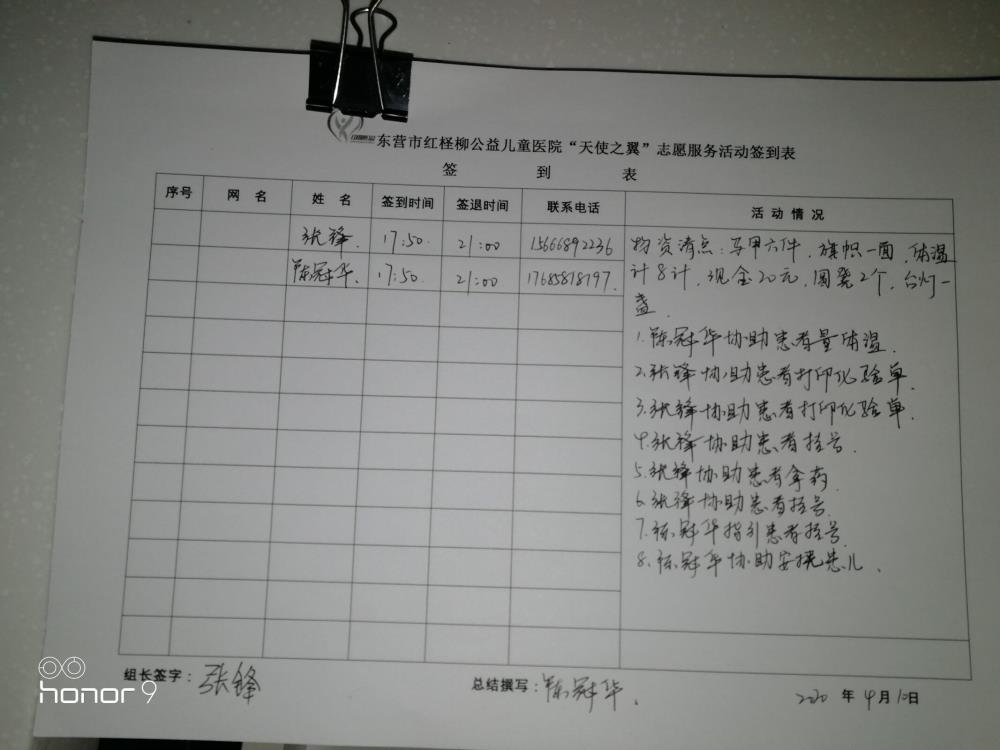 东营市红柽柳公益儿童医院“天使之翼”志愿服务活动签到表
签 到 表
序号 网 名 姓 名 签到时间 签退时间 联系电话 活 动 情 况
张锋. 17:50. 21:00 15666892236
陈冠华. 17:50. 21:00 17685818797.
物资清点:马甲六件,旗帜一面,体温
计8计,现金20元,圆凳2个,台灯一
盏.
1.陈冠华协助患者量体温.
2.张锋协助患者打印化验单.
3.张锋协助患者打印化验单.
4.张锋协助患者挂号.
5.张锋协助患者拿药.
6.张锋协助患者挂号.
7.陈冠华指引患者挂号.
8.陈冠华协助安抚患儿.
组长签字:张锋 总结撰写:陈冠华. 2020 年 4 月 10 日
honor 9